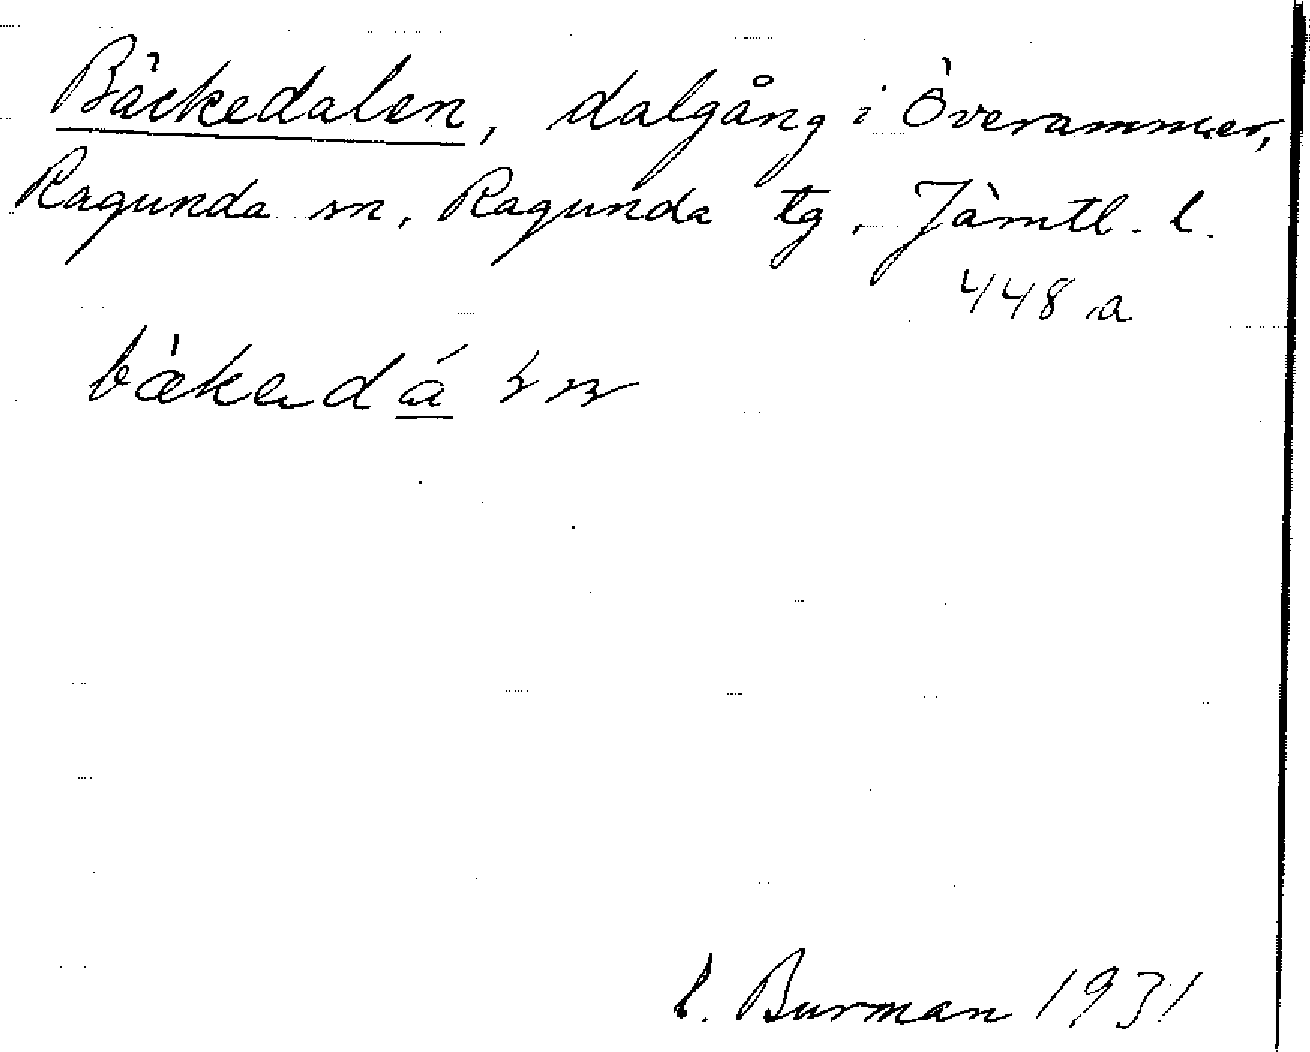 Bäckedalen, dalgång i Överammer,
Ragunda sn, Ragunda tg, Jämtl. l.
448 a
Burman 1931